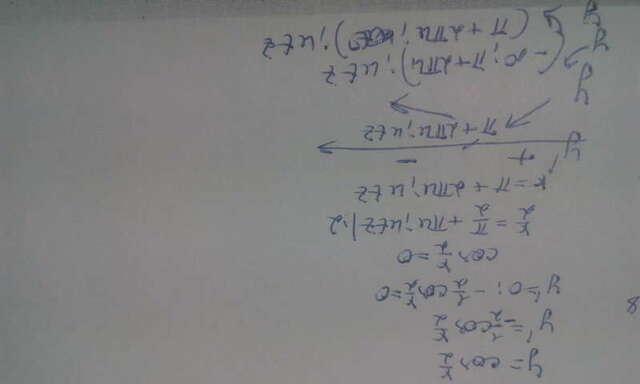 8
y = cos x/2
y' = -1/2 cos x/2
y' = 0: -1/2 cos x/2 = 0
cos x/2 = 0
x/2 = π/2 + πn; n∈z |·2
x = π + 2πn; n∈z
y' + -
y π + 2πn; n∈z
y (-∞; π + 2πn); n∈z
y (π + 2πn; ); n∈z